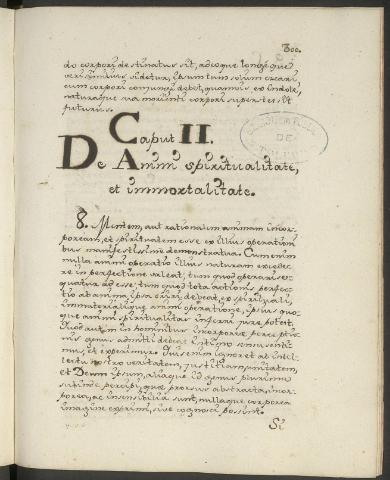 300.
do corpori destinatus sit, adeoque longè que
verisimilius videtur, ipsum tum solum creari,
cum corpori conjungi debet, quamvis ex indole,
naturaque sua morienti corpori superstes sit
futurus.
Caput II.
De Animi spiritualitate,
et immortalitate.
8. Mentem, aut rationalem animam incor-
poream, et spiritualem esse ex illius operationi
bus manifestissime demonstratur. Cum enim
nulla animi operatio illius naturam excede-
re in perfectione valeat, tum quod operari se-
quatur ad esse, tum quod tota actionis perfec-
tio ab anima ipsa oriri debeat, ex spirituali,
immaterialique animi operatione, ipsius quo-
que animi spiritualitas inferri jure potest.
Quod autem in hominibus incorporeae perceptio-
nis genus admitti debeat intimo sensu senti-
mus, et experimur. Quis enim ignoret ab intel-
lectu nostro veritatem, justitiam, unitatem,
et Deum ipsum, aliaque id genus plurima
subinde percipi, quae prorsus abstracta, incor-
porea, ac insensibilia sunt, nullaque corporea
imagine exprimi, sive cognosci possunt.
Si